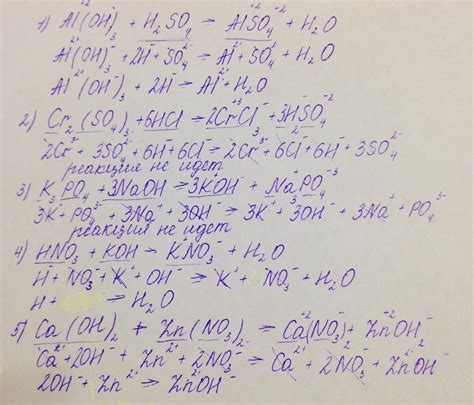 1) Al(OH)₃ + H₂SO₄ = AlSO₄ + H₂O
Al(OH)₃ + 2H + SO₄ = Al + SO₄ + H₂O
Al(OH)₃ + 2H = Al + H₂O
2) Cr₂(SO₄)₃ + 6HCl = 2CrCl₃ + 3HSO₄
2Cr³⁺ + 3SO₄ + 6H + 6Cl = 2Cr + 6Cl + 6H + 3SO₄
реакция не идет
3) K₃PO₄ + 3NaOH = 3KOH + NaPO₄
3K + PO₄ + 3Na + 3OH = 3K + 3OH + 3Na + PO₄
реакция не идет
4) HNO₃ + KOH = KNO₃ + H₂O
H + NO₃ + K + OH = K + NO₃ + H₂O
H + = H₂O
5) Ca(OH)₂ + Zn(NO₃)₂ = Ca(NO₃)₂ + ZnOH₂
Ca + 2OH + Zn + 2NO₃ = Ca + 2NO₃ + ZnOH
2OH + Zn = ZnOH